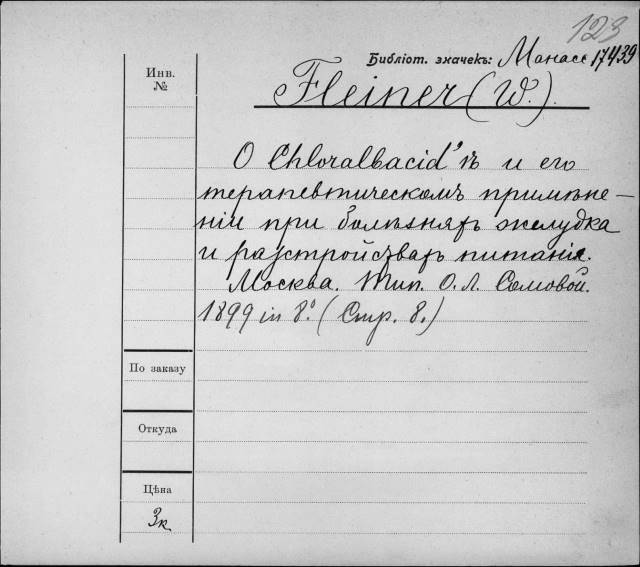 123
Библіот. значекъ: Манасс 17439
Инв. №
Fleiner (W.).
О Chloralbacid'ѣ и его
терапевтическомъ примѣне-
ніи при болѣзняхъ желудка
и разстройствахъ питанія.
Москва. Тип. О. Л. Сомовой.
1899 in 8º. (Стр. 8.)
По заказу
Откуда
Цѣна
3к